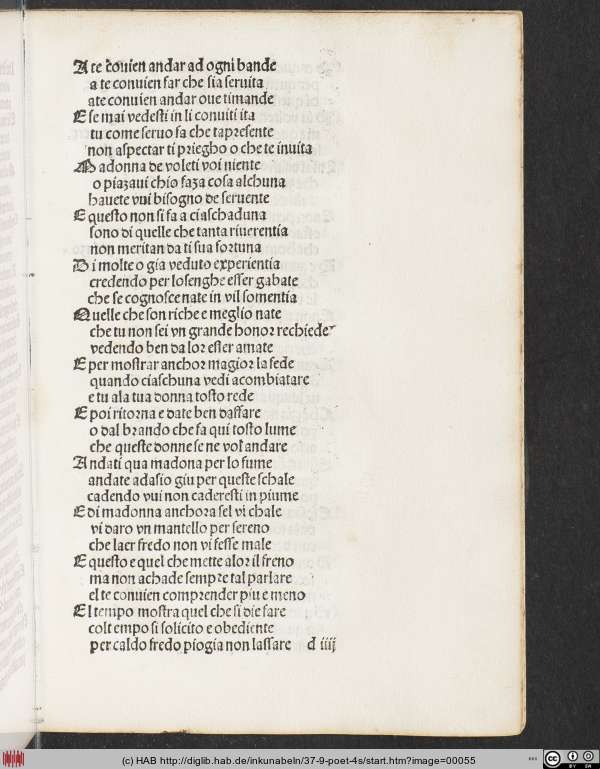 A te cōuien andar ad ogni bande
a te conuien far che sia seruita
ate conuien andar oue timande
E se mai vedesti in li conuiti ita
tu come seruo fa che tapresente
non aspectar ti priegho o che te inuita
Madonna de voleti voi niente
o piazaui chio faza cosa alchuna
hauete vui bisogno de seruente
E questo non si fa a ciaschaduna
sono di quelle che tanta riuerentia
non meritan da ti sua fortuna
Di molte o gia veduto experientia
credendo per losenghe esser gabate
che se cognosce nate in vil somentia
Quelle che son riche e meglio nate
che tu non sei vn grande honor rechiede
vedendo ben da lor ester amate
E per mostrar anchor magior la fede
quando ciaschuna vedi acombiatare
e tu ala tua donna tosto rede
E poi ritorna e date ben dassare
o dal brando che fa qui tosto lume
che queste donne se ne vol andare
Andati qua madona per lo fume
andate adasio giu per queste schale
cadendo vui non caderesti in piume
E di madonna anchora sel vi chale
vi daro vn mantello per sereno
che laer fredo non vi fesse male
E questo e quel che mette alor il freno
ma non achade sempre tal parlare
el te conuien comprender piu e meno
El tempo mostra quel che si die fare
colt empo si solicito e obediente
per caldo fredo piogia non lassare d iiij
(c) HAB http://diglib.hab.de/inkunabeln/37-9-poet-4s/start.htm?image=00055
cc BY SA